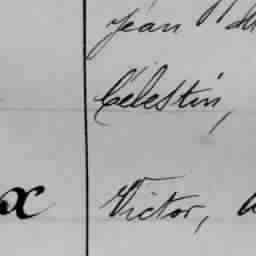 Jean
Célestin,
x Victor,